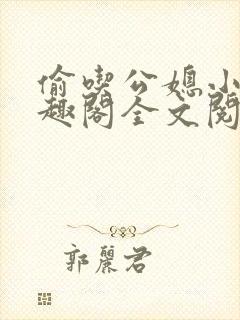 偷喫公媳小
趣閣全文閱
郭麗君